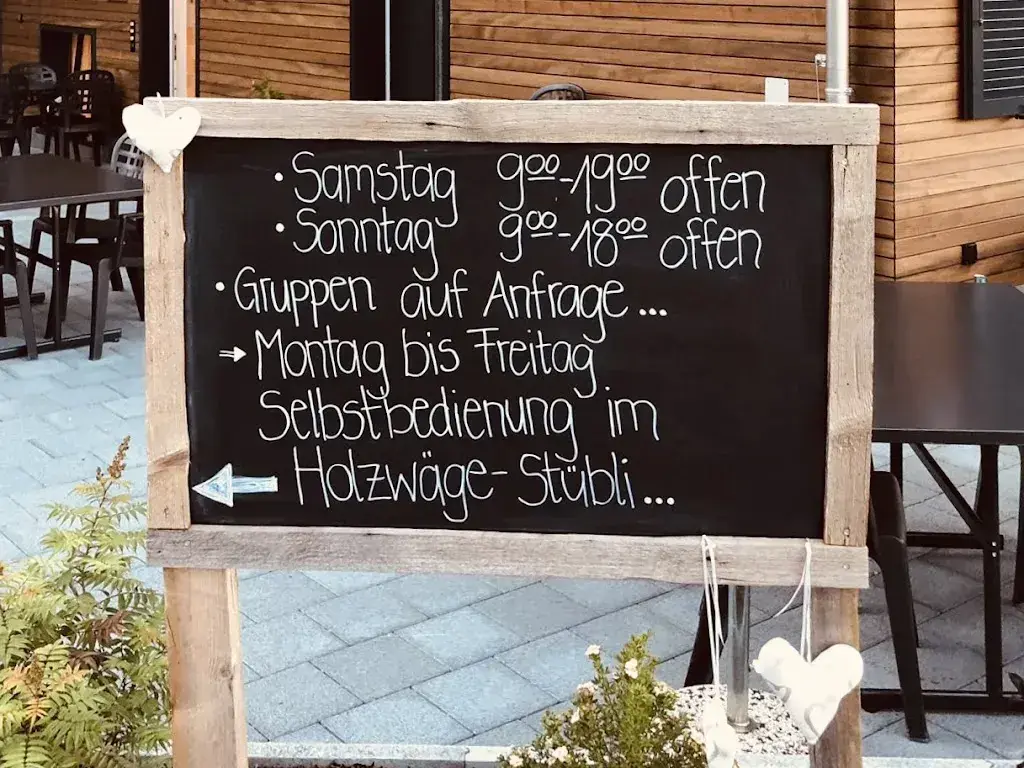 • Samstag 9⁰⁰-19⁰⁰ offen
• Sonntag 9⁰⁰-18⁰⁰ offen
• Gruppen auf Anfrage...
⇒ Montag bis Freitag
Selbstbedienung im
← Holzwäge-Stübli...